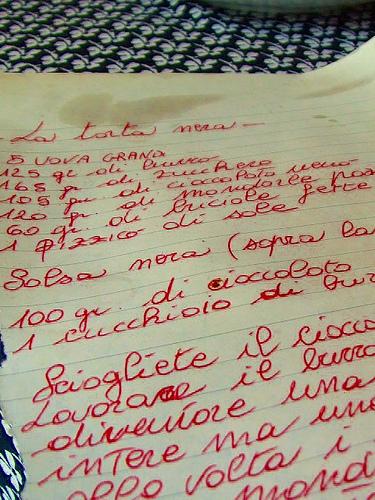 - La torta nera -
5 UOVA GRANDI
125 gr di burro
165 gr di zucchero
105 gr di cioccolato nero
120 gr di mandorle
60 gr di briciole fette
1 pizzico di sale
Salsa nera (sopra la
100 gr. di cioccolato
1 cucchiaio di bur
Sciogliete il ciocco
Lavorare il burro
diventare una
intere ma una
alla volta i
mand